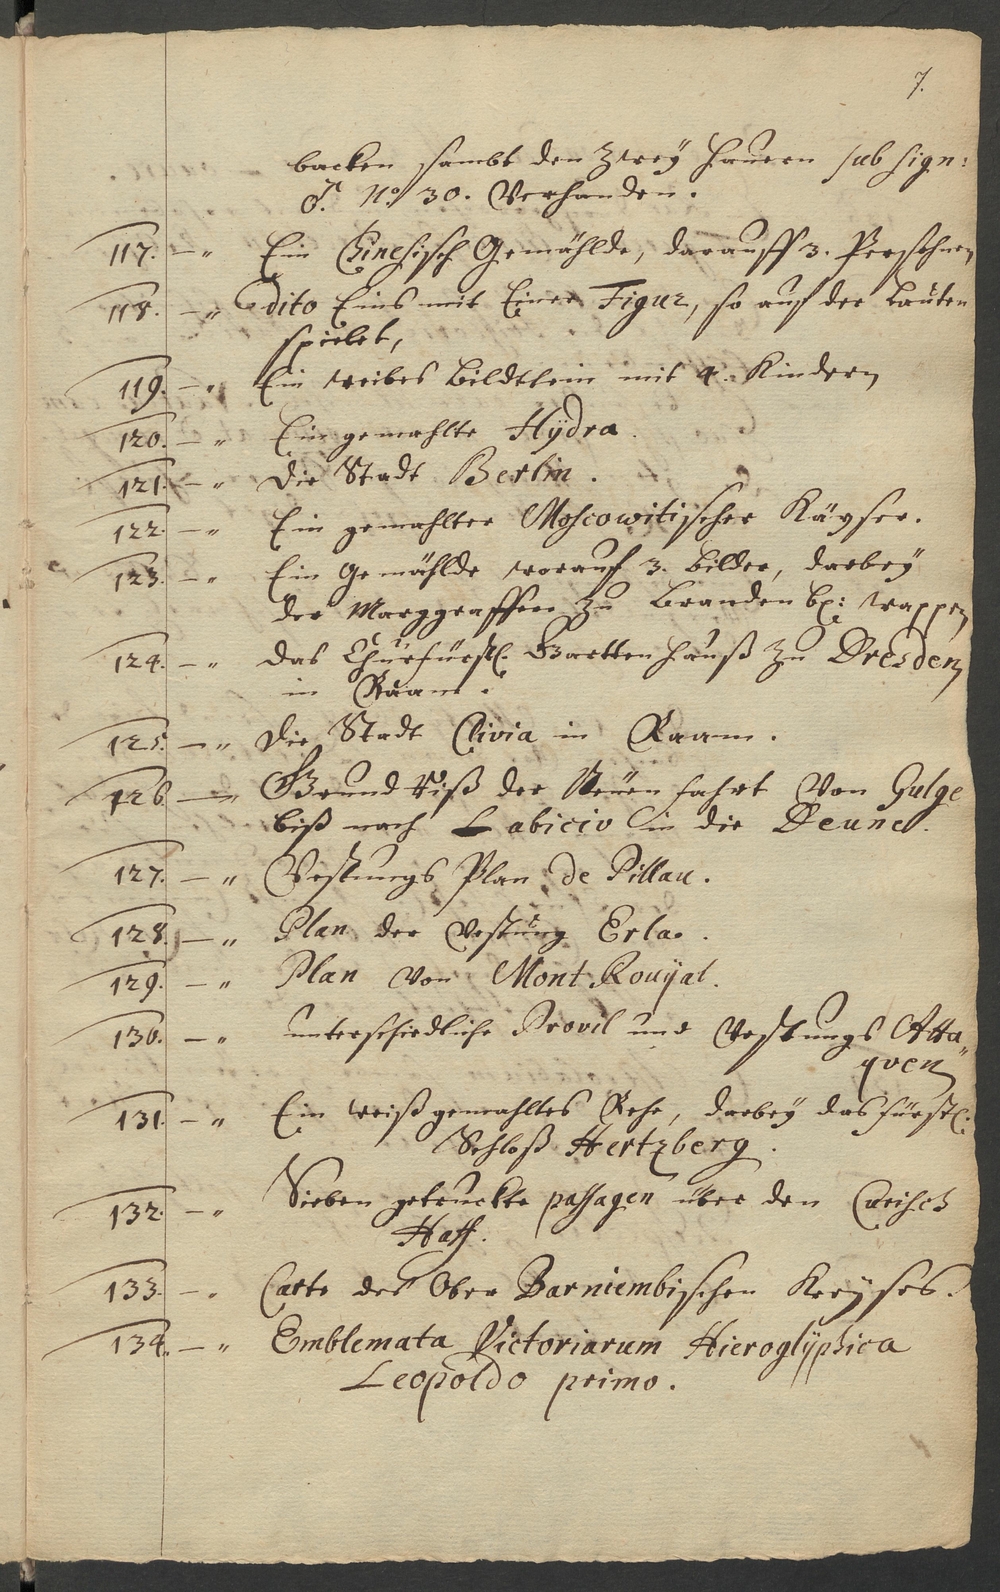 7.
backen sambt den Zwey Hauern sub sign:
N.o 30. Verhanden.
117. — " Ein Chinesisch Gemählde, darauff 3. Persohnen
118. — " dito Eins mit Einer Figur, so auf der Lauten
spielet,
119. — " Ein weibes Bildtlein mit 4. Kindern
120. — " Ein gemahlte Hÿdra.
121. — " Die Stadt Berlin.
122. — " Ein gemahlter Moscowitischer Käyser.
123. — " Ein Gemählde worauf 3. Bilder, darbey
der Marggraffen zu Brandenb: wappen
124. — " Das Churfürstl. Gartten Hauß zu Dresden
in Raam.
125. — " Die Stadt Clivia in Raam.
126. — " Grund Riß der Neüen fahrt Von Gilge
biß nach Labicio in die Deune.
127. — " Vestungs Plan de Pillau.
128. — " Plan der Vestung Erla.
129. — " Plan Von Mont Rouÿal.
130. — " unterschiedliche Provil und Vestungs Atta„
quen
131. — " Ein weiß gemahltes Rehe, darbeÿ das fürstl.
Schloß Hertzberg.
132. — " Sieben getruckte passagen über den Curisch
Haff.
133. — " Carte des Ober Barniembischen Kreÿses.
134. — " Emblemata Victoriarum Hieroglÿphica
Leopoldo primo.